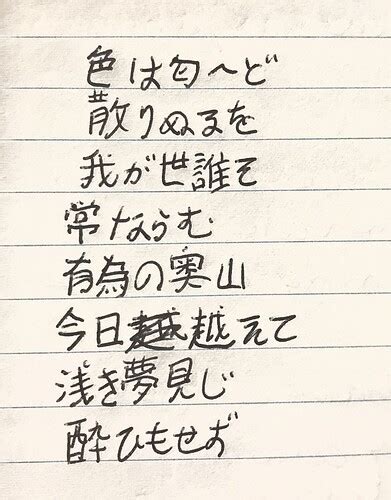 色は匂へど
散りぬるを
我が世誰そ
常ならむ
有為の奥山
今日越えて
浅き夢見じ
酔ひもせず